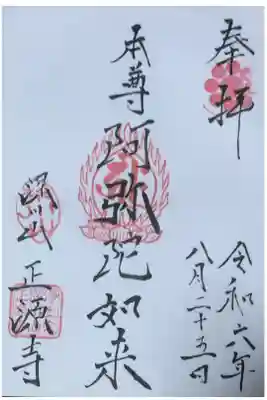 奉拝
令和六年
八月二十五日
本尊 阿弥陀如来
深川 正源寺